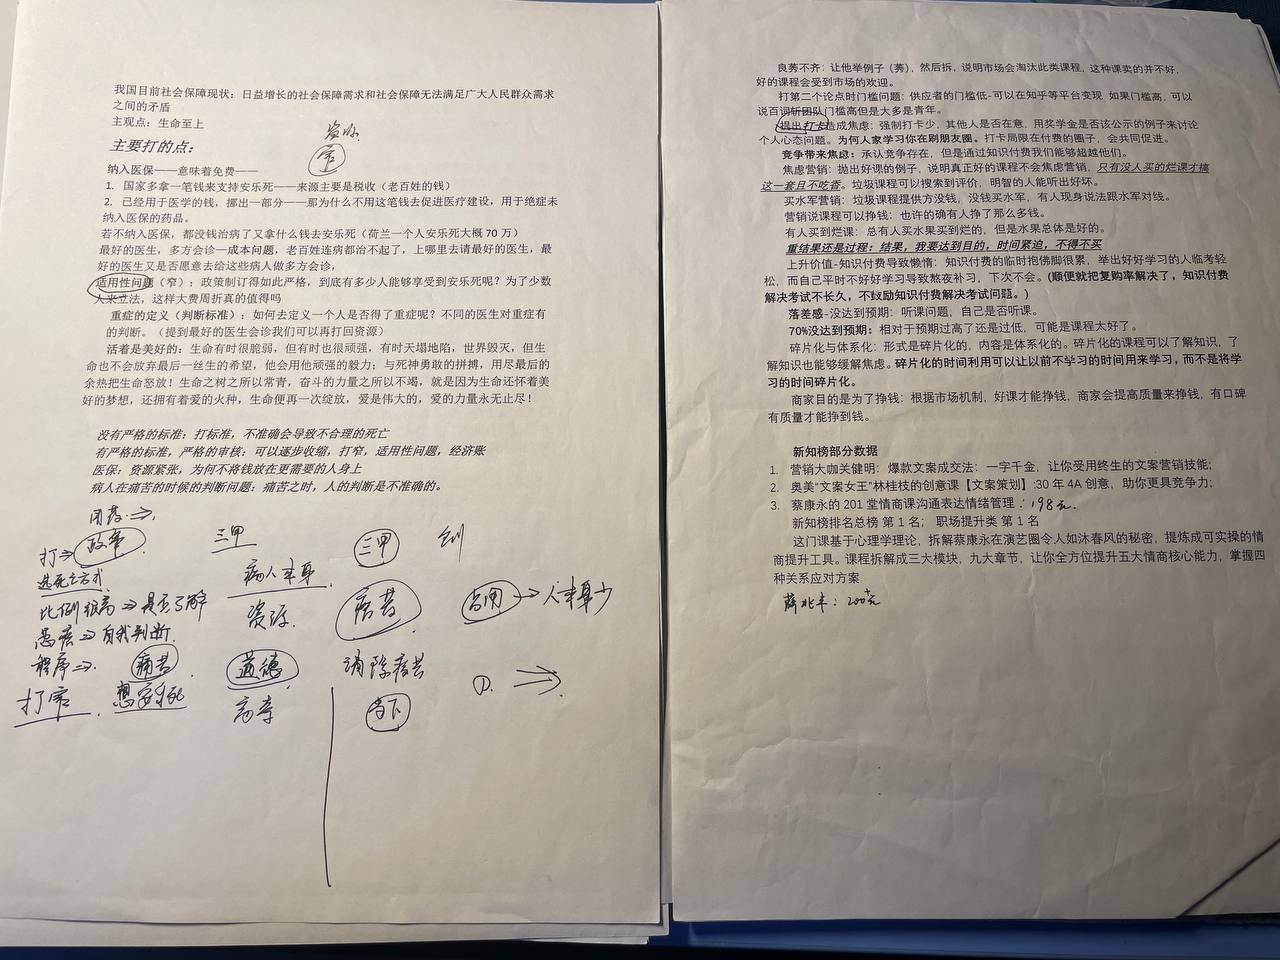 我国目前社会保障现状：日益增长的社会保障需求和社会保障无法满足广大人民群众需求
之间的矛盾
主观点：生命至上
资源
主要打的点：
纳入医保——意味着免费——
1. 国家多拿一笔钱来支持安乐死——来源主要是税收（老百姓的钱）
2. 已经用于医学的钱，挪出一部分——那为什么不用这笔钱去促进医疗建设，用于绝症未
纳入医保的药品。
若不纳入医保，都没钱治病了又拿什么钱去安乐死（荷兰一个人安乐死大概 70 万）
最好的医生，多方会诊—成本问题，老百姓连病都治不起了，上哪里去请最好的医生，最
好的医生又是否愿意去给这些病人做多方会诊，
适用性问题（窄）：政策制订得如此严格，到底有多少人能够享受到安乐死呢？为了少数
人来立法，这样大费周折真的值得吗
重症的定义（判断标准）：如何去定义一个人是否得了重症呢？不同的医生对重症有
的判断。（提到最好的医生会诊我们可以再打回资源）
活着是美好的：生命有时很脆弱，但有时也很顽强，有时天塌地陷，世界毁灭，但生
命也不会放弃最后一丝生的希望，他会用他顽强的毅力；与死神勇敢的拼搏，用尽最后的
余热把生命怒放！生命之树之所以常青，奋斗的力量之所以不竭，就是因为生命还怀着美
好的梦想，还拥有着爱的火种，生命便再一次绽放，爱是伟大的，爱的力量永无止尽！
没有严格的标准：打标准，不准确会导致不合理的死亡
有严格的标准，严格的审核：可以逐步收缩，打窄，适用性问题，经济账
医保：资源紧张，为何不将钱放在更需要的人身上
病人在痛苦的时候的判断问题：痛苦之时，人的判断是不准确的。
打⇒ 政策
三甲
三甲
选死亡方式
病人本身
比例很高⇒是否了解
资源
痛苦
占用→人本身少
患者⇒自我判断
程序⇒
痛苦
道德
消除痛苦
①
打窄
想要死
当下
良莠不齐：让他举例子（莠），然后拆，说明市场会淘汰此类课程，这种课卖的并不好，
好的课程会受到市场的欢迎。
打第二个论点时门槛问题：供应者的门槛低-可以在知乎等平台变现 如果门槛高，可以
说百词斩团队门槛高但是大多是青年。
提出打卡造成焦虑：强制打卡少，其他人是否在意，用奖学金是否该公示的例子来讨论
个人心态问题。为何人家学习你在刷朋友圈。打卡局限在付费的圈子，会共同促进。
竞争带来焦虑：承认竞争存在，但是通过知识付费我们能够超越他们。
焦虑营销：抛出好课的例子，说明真正好的课程不会焦虑营销，只有没人买的烂课才搞
这一套且不吃香。垃圾课程可以搜索到评价，明智的人能听出好坏。
买水军营销：垃圾课程提供方没钱，没钱买水军，有人现身说法跟水军对线。
营销说课程可以挣钱：也许的确有人挣了那么多钱。
有人买到烂课：总有人买水果买到烂的，但是水果总体是好的。
重结果还是过程：结果，我要达到目的，时间紧迫，不得不买
上升价值-知识付费导致懒惰：知识付费的临时抱佛脚很累，举出好好学习的人临考轻
松，而自己平时不好好学习导致熬夜补习，下次不会。（顺便就把复购率解决了，知识付费
解决考试不长久，不鼓励知识付费解决考试问题。）
落差感-没达到预期：听课问题，自己是否听课。
70%没达到预期：相对于预期过高了还是过低，可能是课程太好了。
碎片化与体系化：形式是碎片化的，内容是体系化的。碎片化的课程可以了解知识，了
解知识也能够缓解焦虑。碎片化的时间利用可以让以前不学习的时间用来学习，而不是将学
习的时间碎片化。
商家目的是为了挣钱：根据市场机制，好课才能挣钱，商家会提高质量来挣钱，有口碑
有质量才能挣到钱。
新知榜部分数据
1. 营销大咖关健明：爆款文案成交法：一字千金，让你受用终生的文案营销技能；
2. 奥美“文案女王”林桂枝的创意课【文案策划】:30 年 4A 创意，助你更具竞争力；
3. 蔡康永的 201 堂情商课沟通表达情绪管理：198元.
新知榜排名总榜 第 1 名； 职场提升类 第 1 名
这门课基于心理学理论，拆解蔡康永在演艺圈令人如沐春风的秘密，提炼成可实操的情
商提升工具。课程拆解成三大模块，九大章节，让你全方位提升五大情商核心能力，掌握四
种关系应对方案
薛兆丰：200+元